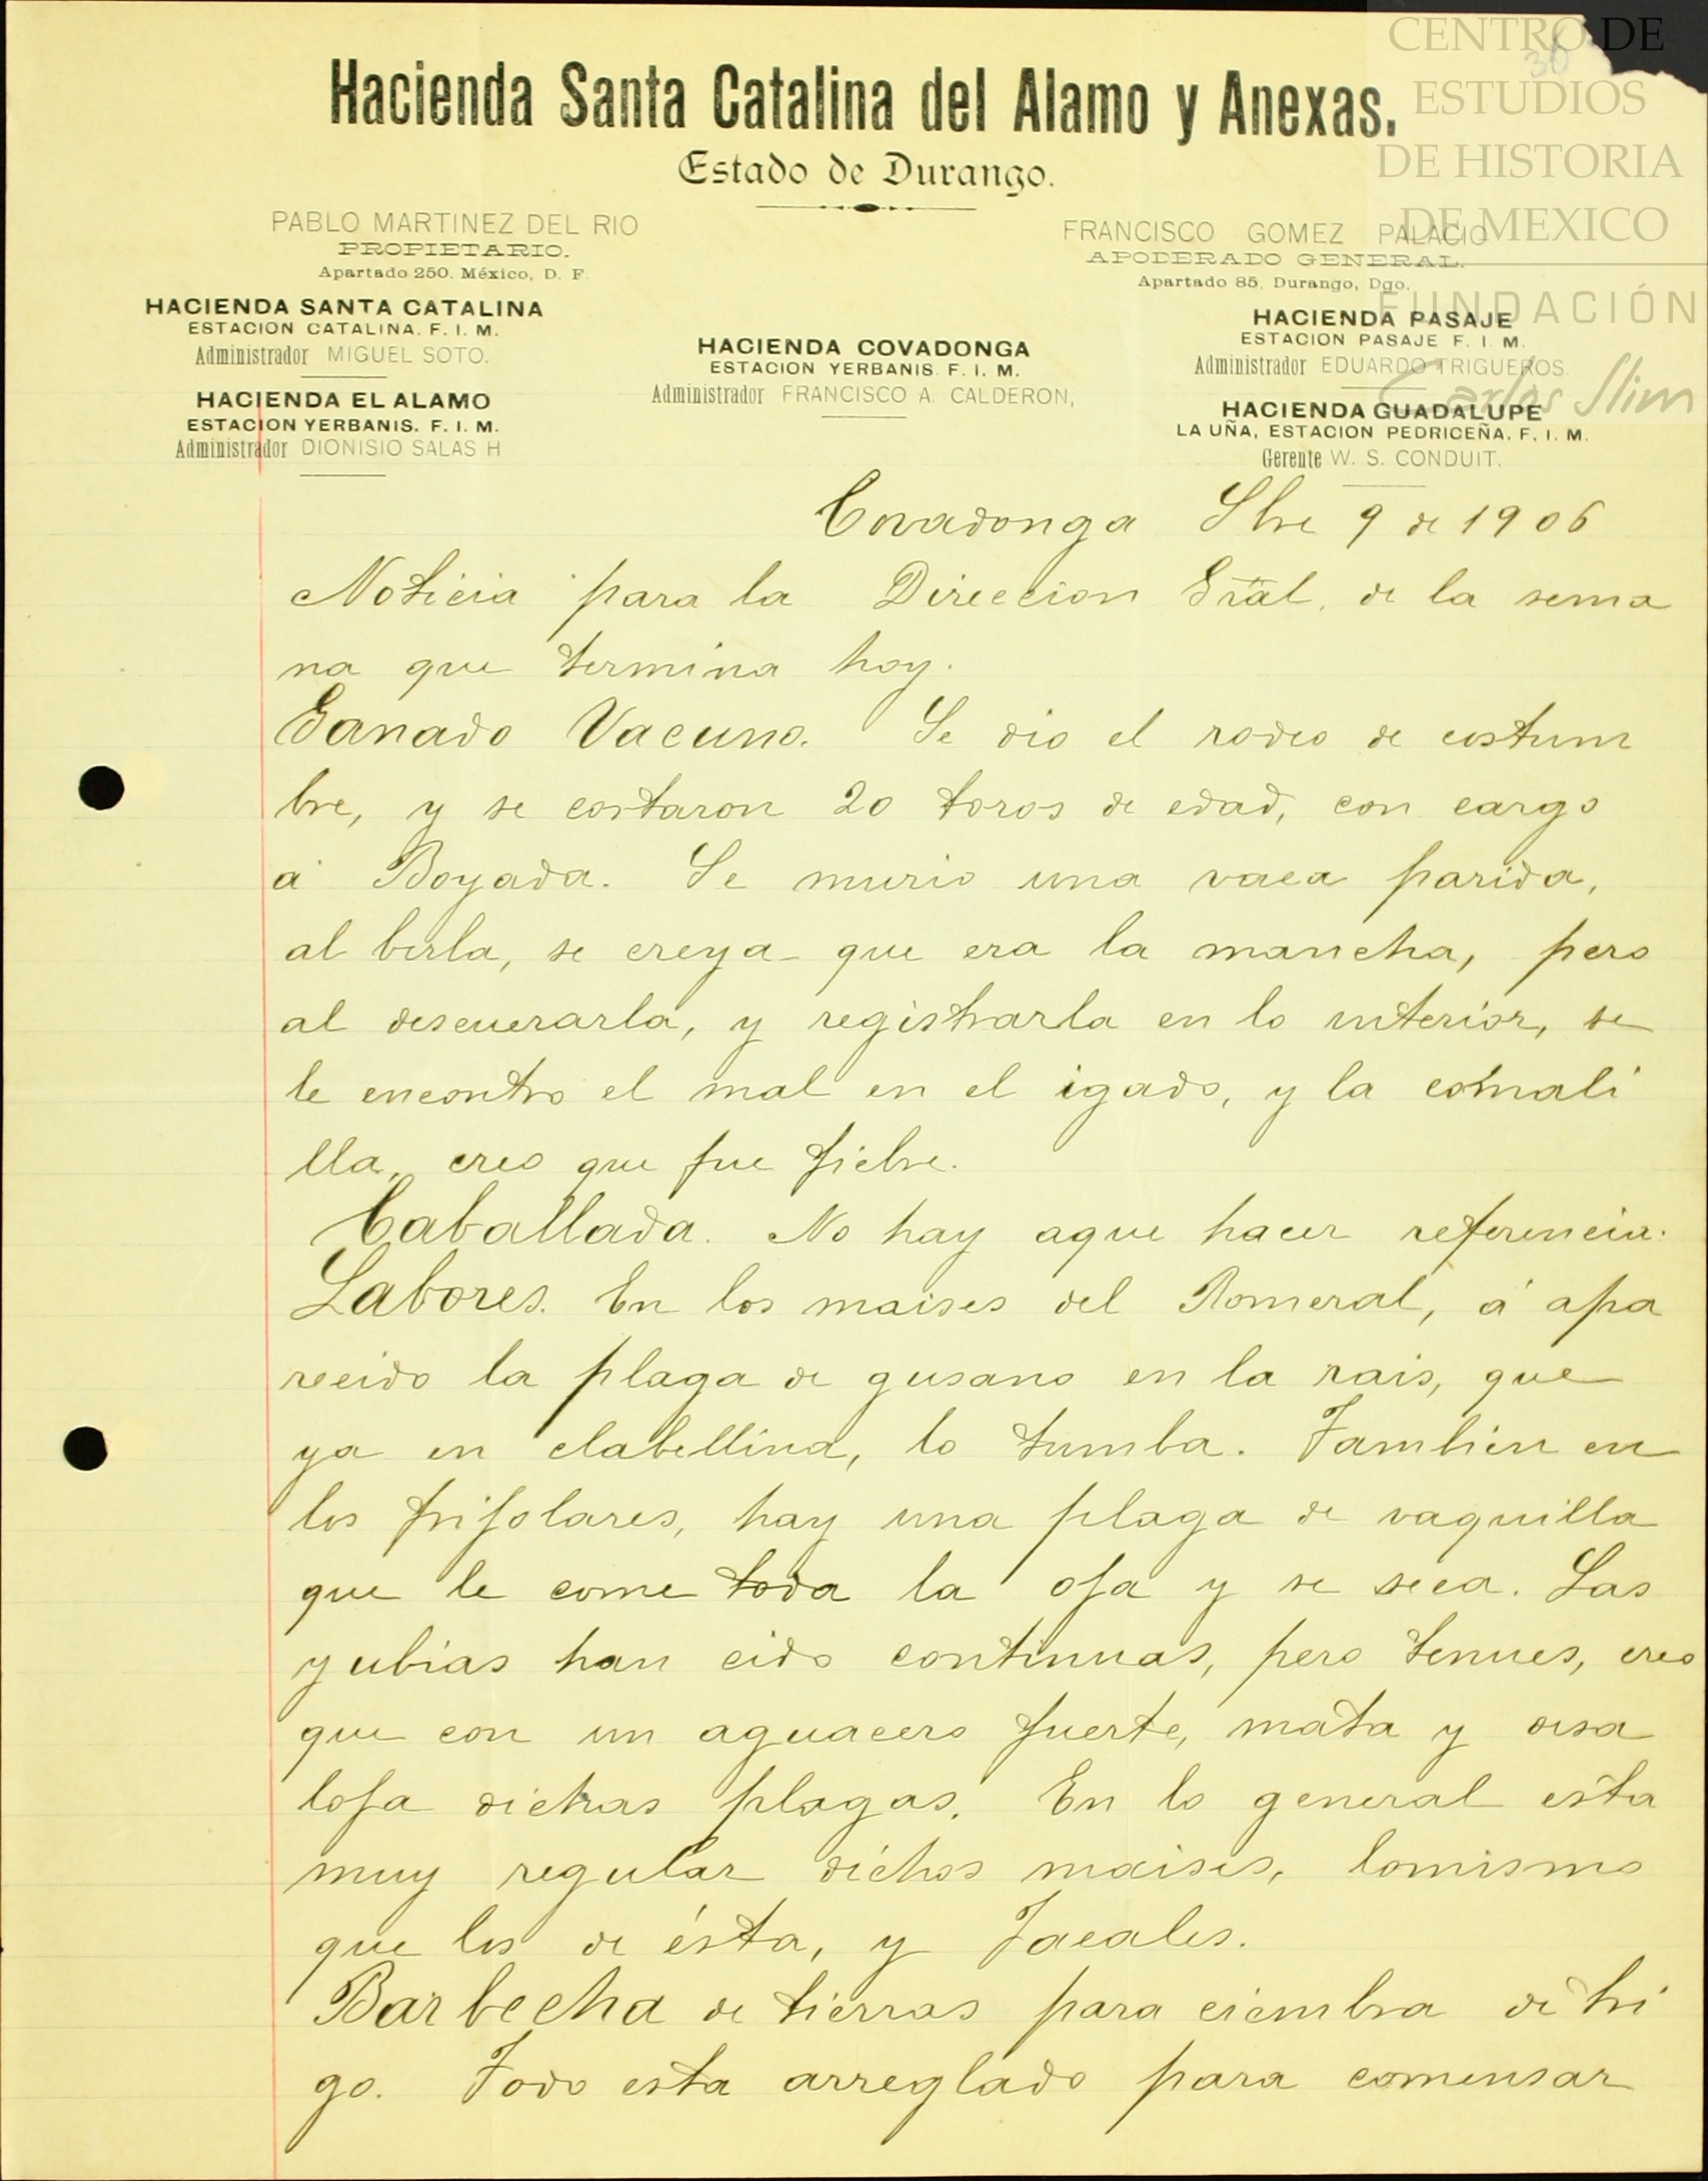 CENTRO DE
ESTUDIOS
DE HISTORIA
DE MEXICO
FUNDACIÓN
Carlos Slim
36
Hacienda Santa Catalina del Alamo y Anexas.
Estado de Durango.
PABLO MARTINEZ DEL RIO
PROPIETARIO.
Apartado 250. México, D. F.
FRANCISCO GOMEZ PALACIO
APODERADO GENERAL.
Apartado 85, Durango, Dgo.
HACIENDA SANTA CATALINA
ESTACION CATALINA. F. I. M.
Administrador MIGUEL SOTO.
HACIENDA EL ALAMO
ESTACION YERBANIS. F. I. M.
Administrador DIONISIO SALAS H
HACIENDA COVADONGA
ESTACION YERBANIS. F. I. M.
Administrador FRANCISCO A. CALDERON,
HACIENDA PASAJE
ESTACION PASAJE F. I. M.
Administrador EDUARDO TRIGUEROS
HACIENDA GUADALUPE
LA UÑA, ESTACION PEDRICEÑA. F. I. M.
Gerente W. S. CONDUIT.
Covadonga Sbre 9 de 1906
Noticia para la Direccion Gral. de la sema
na que termina hoy.
Ganado Vacuno. Se dio el rodeo de costum
bre, y se cortaron 20 toros de edad, con cargo
a Boyada. Se murio una vaca parida,
al berla, se creya que era la mancha, pero
al descuerarla, y registrarla en lo interior, se
le encontro el mal en el igado, y la comali
lla, creo que fue fiebre.
Caballada. No hay aque hacer referencia.
Labores. En los maises del Romeral, á apa
recido la plaga de gusano en la rais, que
ya en clabellina, lo tumba. Tambien en
los frijolares, hay una plaga de vaquilla
que le come toda la oja y se seca. Las
yubias han cido continuas, pero tenues, creo
que con un aguacero fuerte, mata y desa
loja dichas plagas. En lo general esta
muy regular dichos maises, lomismo
que los de ésta, y Jacales.
Barbecha de tierras para ciembra de tri
go. Todo esta arreglado para comensar